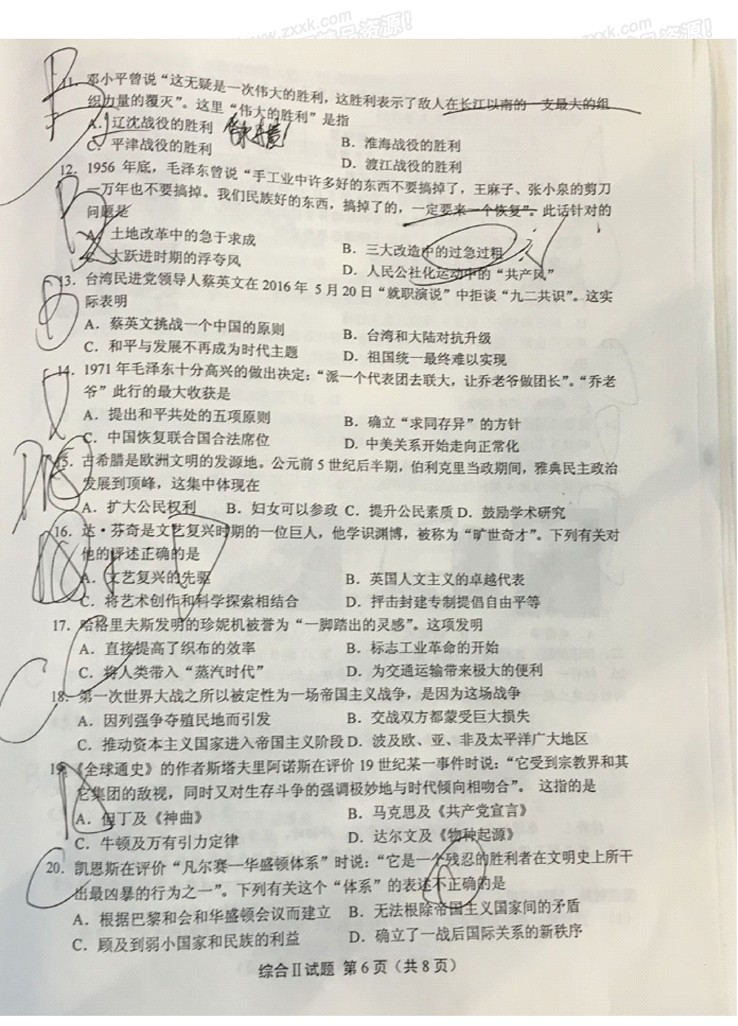 www.zxxk.com
www.zxxk.com
11. 邓小平曾说“这无疑是一次伟大的胜利，这胜利表示了敌人在长江以南的一支最大的组
织力量的覆灭”。这里“伟大的胜利”是指
A. 辽沈战役的胜利
B. 淮海战役的胜利
C. 平津战役的胜利
D. 渡江战役的胜利
12. 1956 年底，毛泽东曾说“手工业中许多好的东西不要搞掉了，王麻子、张小泉的剪刀
一万年也不要搞掉。我们民族好的东西，搞掉了的，一定要来一个恢复”。此话针对的
问题是
A. 土地改革中的急于求成
B. 三大改造中的过急过粗
C. 大跃进时期的浮夸风
D. 人民公社化运动中的“共产风”
13. 台湾民进党领导人蔡英文在 2016 年 5 月 20 日“就职演说”中拒谈“九二共识”。这实
际表明
A. 蔡英文挑战一个中国的原则
B. 台湾和大陆对抗升级
C. 和平与发展不再成为时代主题
D. 祖国统一最终难以实现
14. 1971 年毛泽东十分高兴的做出决定：“派一个代表团去联大，让乔老爷做团长”。“乔老
爷”此行的最大收获是
A. 提出和平共处的五项原则
B. 确立“求同存异”的方针
C. 中国恢复联合国合法席位
D. 中美关系开始走向正常化
15. 古希腊是欧洲文明的发源地。公元前 5 世纪后半期，伯利克里当政期间，雅典民主政治
发展到顶峰，这集中体现在
A. 扩大公民权利 B. 妇女可以参政 C. 提升公民素质 D. 鼓励学术研究
16. 达·芬奇是文艺复兴时期的一位巨人，他学识渊博，被称为“旷世奇才”。下列有关对
他的评述正确的是
A. 文艺复兴的先驱
B. 英国人文主义的卓越代表
C. 将艺术创作和科学探索相结合
D. 抨击封建专制提倡自由平等
17. 哈格里夫斯发明的珍妮机被誉为“一脚踏出的灵感”。这项发明
A. 直接提高了织布的效率
B. 标志工业革命的开始
C. 将人类带入“蒸汽时代”
D. 为交通运输带来极大的便利
18. 第一次世界大战之所以被定性为一场帝国主义战争，是因为这场战争
A. 因列强争夺殖民地而引发
B. 交战双方都蒙受巨大损失
C. 推动资本主义国家进入帝国主义阶段 D. 波及欧、亚、非及太平洋广大地区
19. 《全球通史》的作者斯塔夫里阿诺斯在评价 19 世纪某一事件时说：“它受到宗教界和其
它集团的敌视，同时又对生存斗争的强调极妙地与时代倾向相吻合”。 这指的是
A. 但丁及《神曲》
B. 马克思及《共产党宣言》
C. 牛顿及万有引力定律
D. 达尔文及《物种起源》
20. 凯恩斯在评价“凡尔赛—华盛顿体系”时说：“它是一个残忍的胜利者在文明史上所干
出最凶暴的行为之一”。下列有关这个“体系”的表述不正确的是
A. 根据巴黎和会和华盛顿会议而建立 B. 无法根除帝国主义国家间的矛盾
C. 顾及到弱小国家和民族的利益
D. 确立了一战后国际关系的新秩序
综合Ⅱ试题 第 6 页（共 8 页）